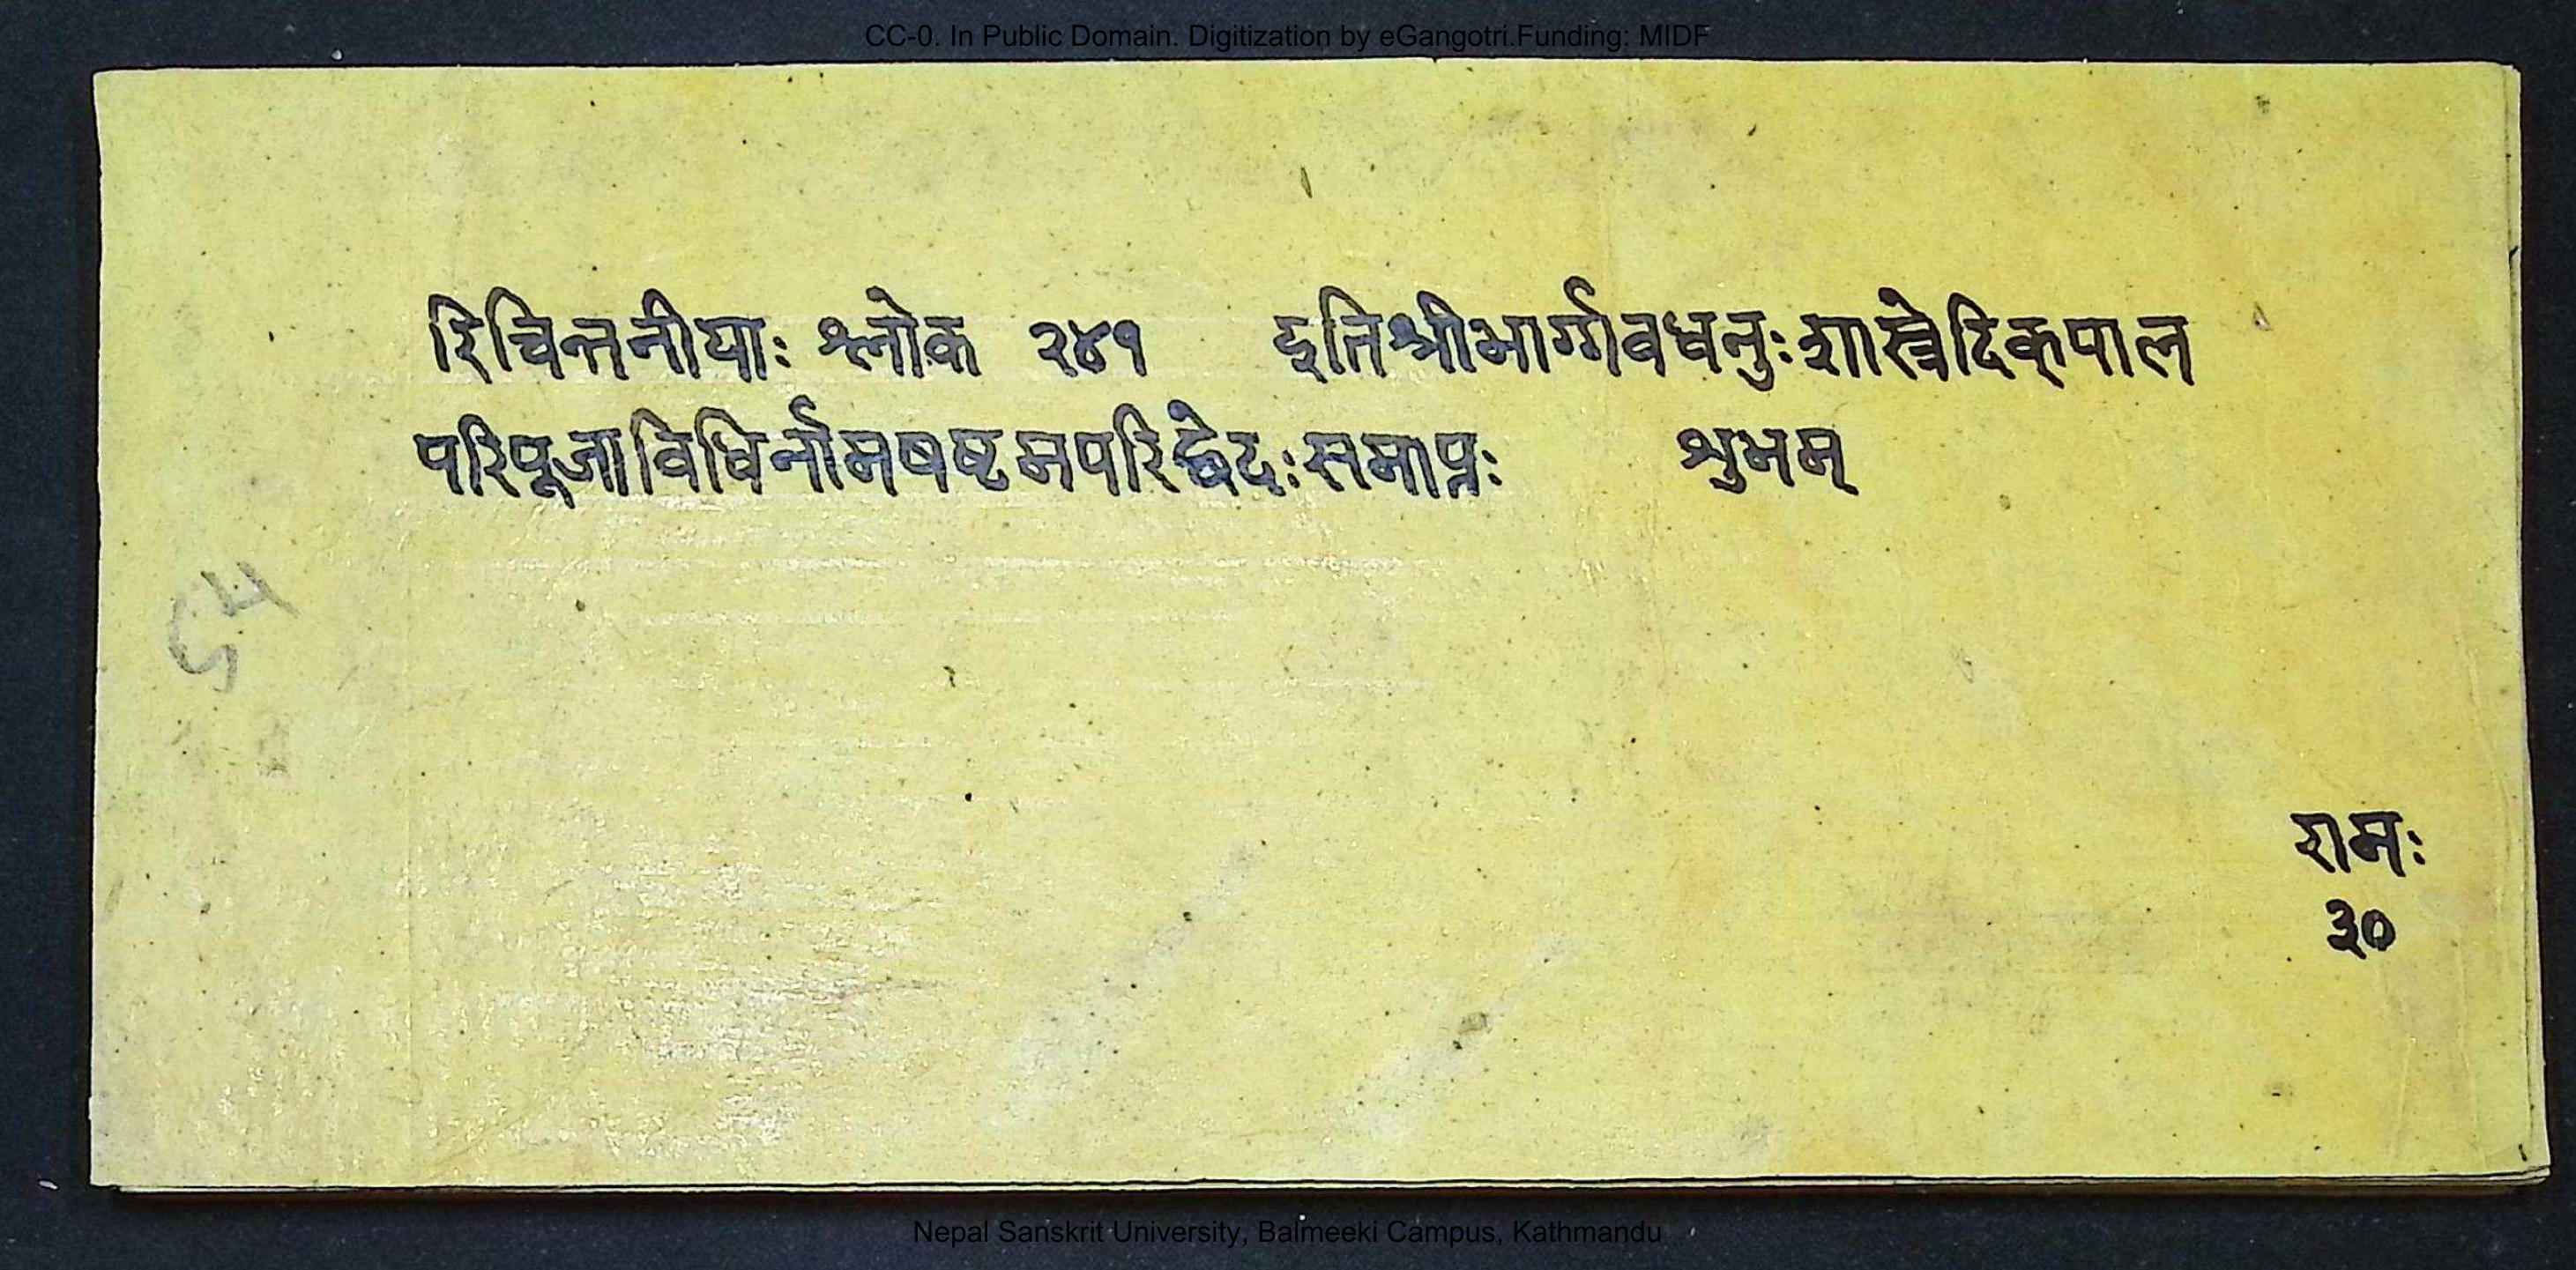 CC-0. In Public Domain. Digitization by eGangotri.Funding: MIDF
रिचिन्तनीयाः श्लोक २४१ इतिश्रीभार्ग्गवधनुःशास्त्रेदिक्पाल
परिपूजाविधिर्नामषष्टमपरिछेदःसमाप्तः शुभम्
रामः
३०
Nepal Sanskrit University, Balmeeki Campus, Kathmandu